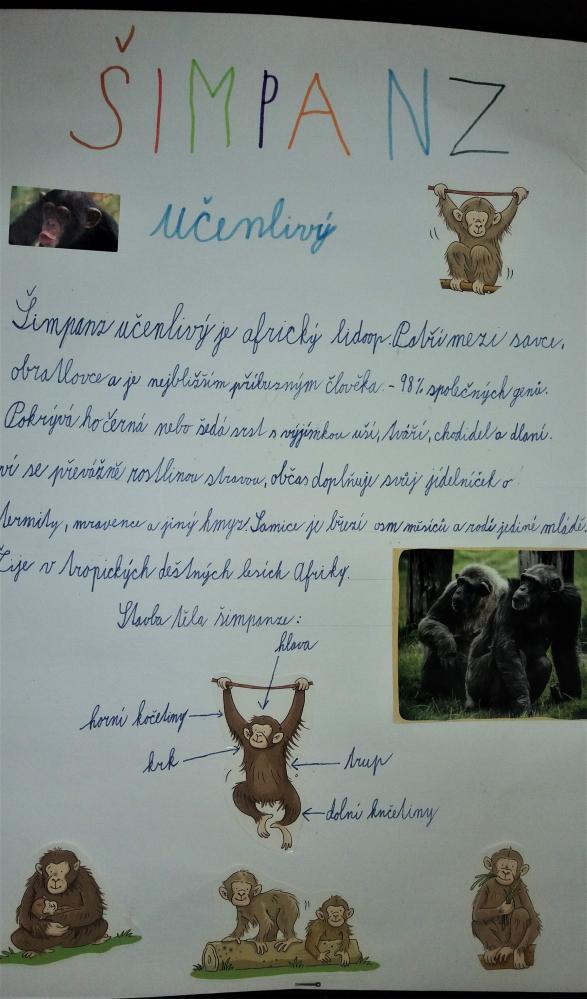 ŠIMPANZ
Učenlivý
Šimpanz učenlivý je africký lidoop. Patří mezi savce,
obratlovce a je nejbližším příbuzným člověka. - 98% společných genů.
Pokrývá ho černá nebo šedá srst s výjimkou uší, tváří, chodidel a dlaní.
ví se převážně rostlinou stravou, občas doplňuje svůj jídelníček o
termity, mravence a jiný hmyz. Samice je březí osm měsíců a rodí jediné mládě.
Žije v tropických deštných lesích Afriky.
Stavba těla šimpanze:
hlava
horní končetiny
krk
trup
dolní končetiny